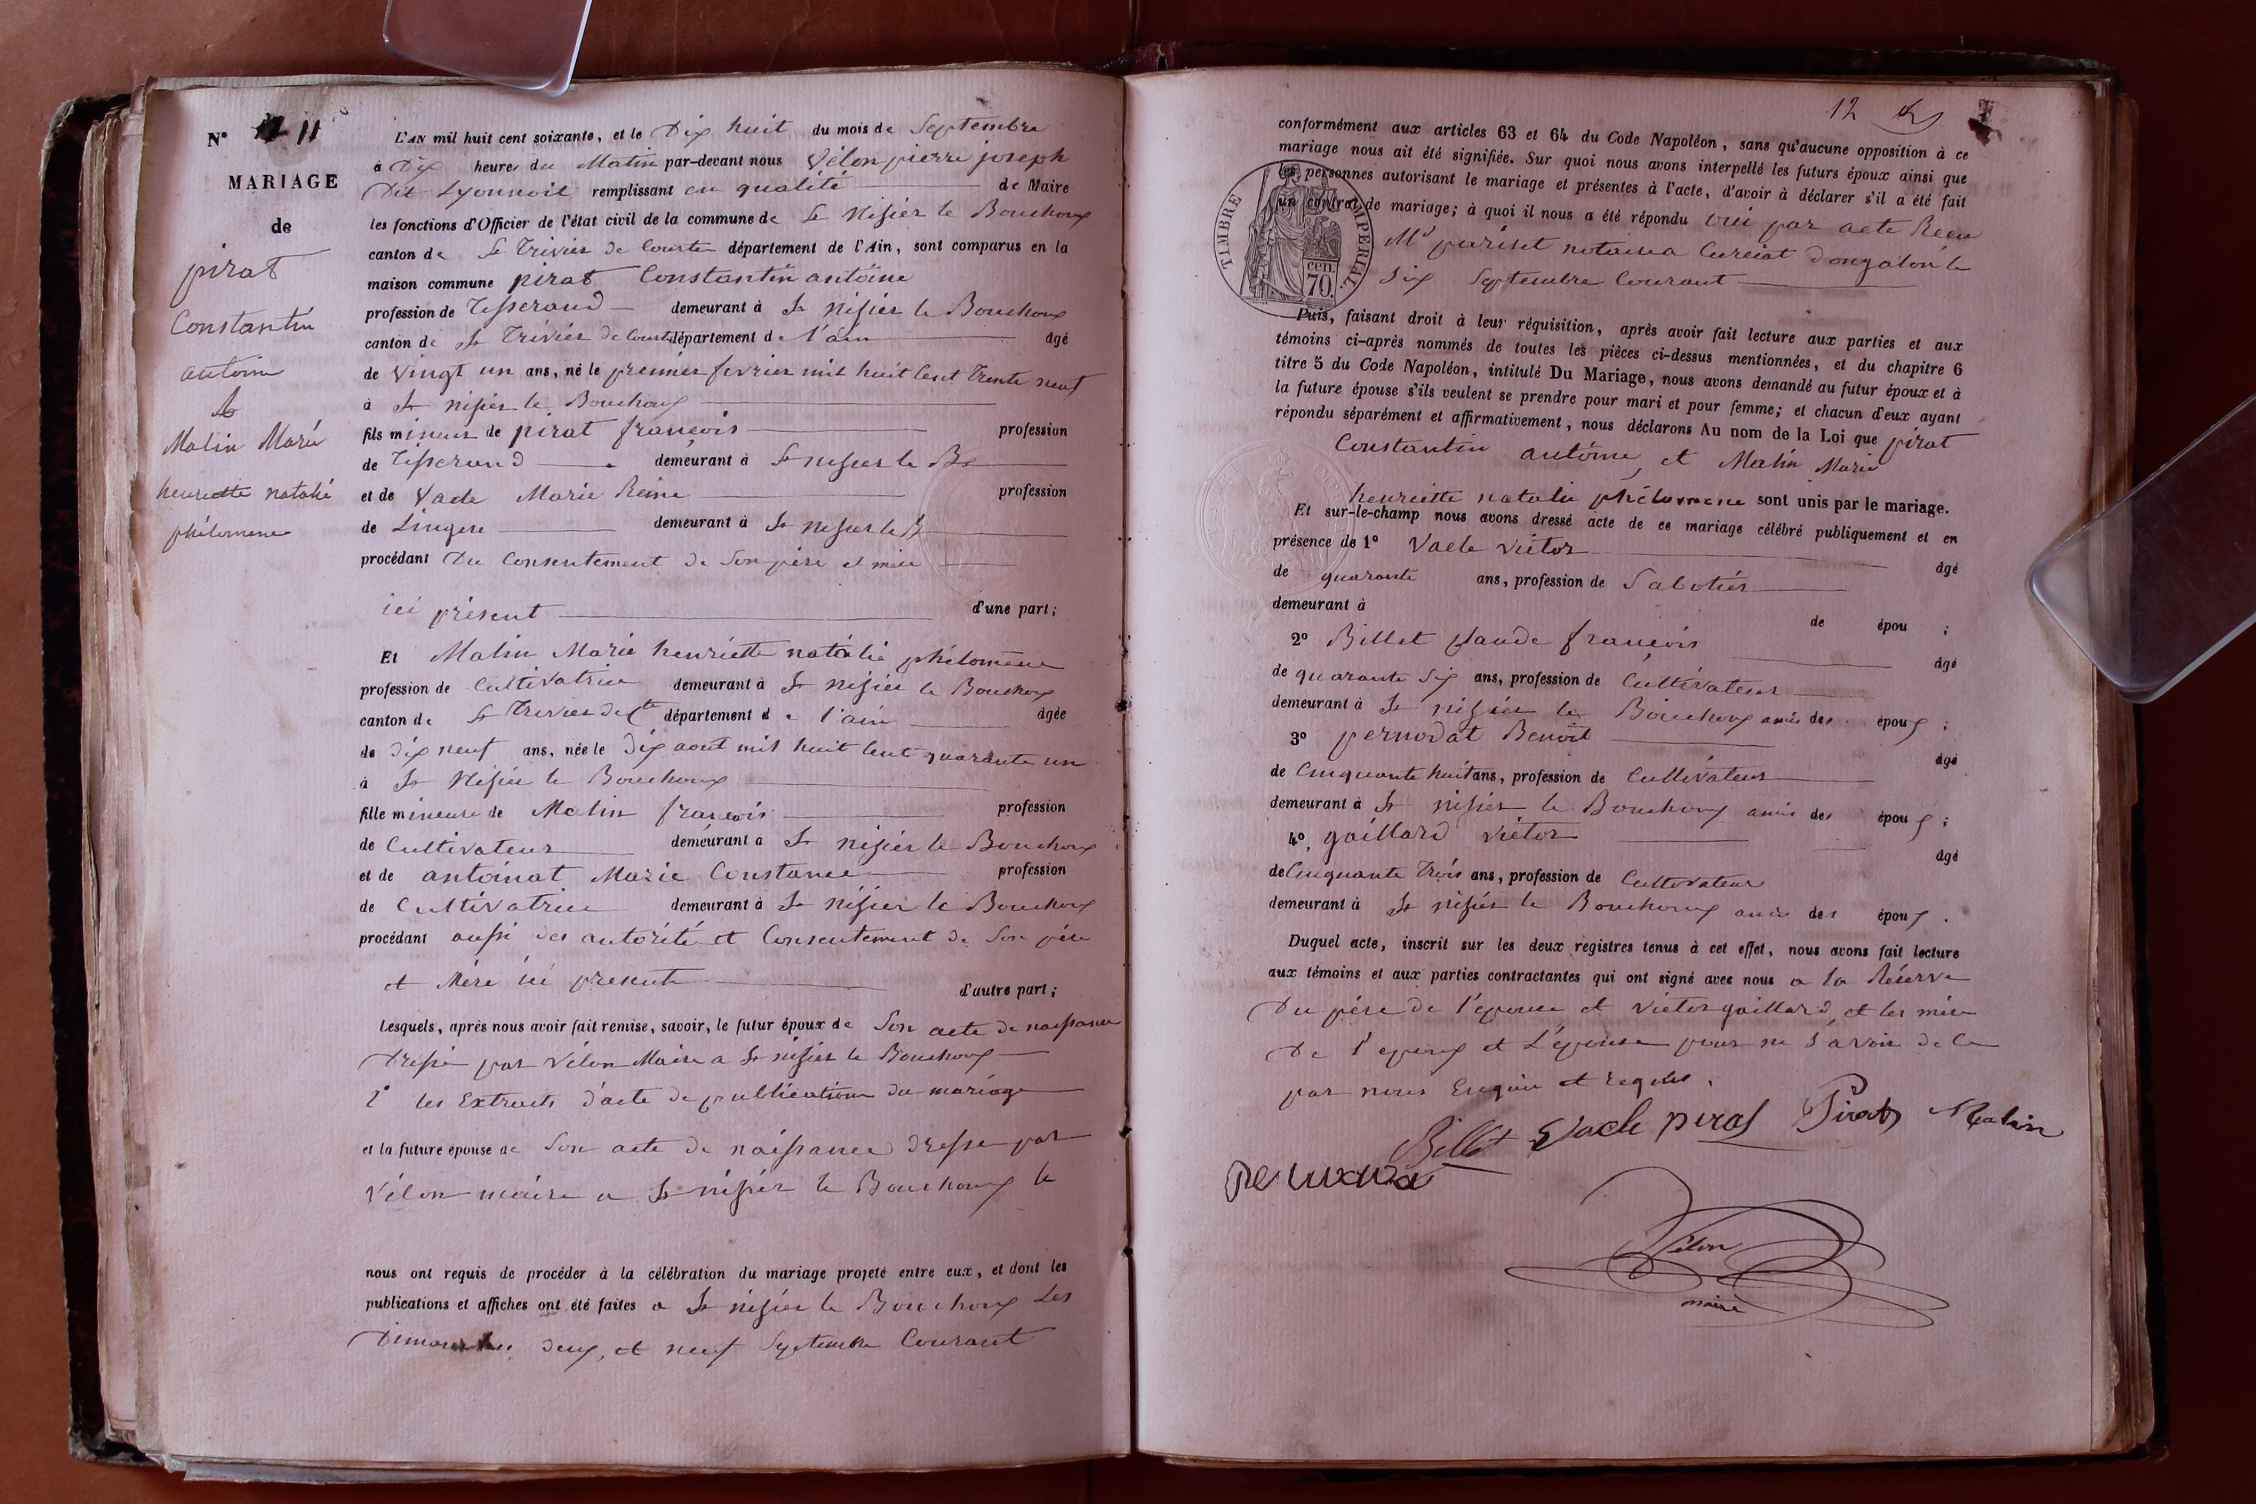 N° 11
MARIAGE
de
pirat
Constantin
antoine
&
Malin Marie
henriette natalie
philomene
L'AN mil huit cent soixante, et le Dix huit du mois de Septembre
à Dix heures du Matin par-devant nous Vélon pierre joseph
Dit Lyonnois remplissant en qualité de Maire
les fonctions d'Officier de l'état civil de la commune de St Nisier le Bouchoux
canton de St Trivier de Courte département de l'Ain, sont comparus en la
maison commune pirat Constantin antoine
profession de Tisserand demeurant à St Nisier le Bouchoux
canton de St Trivier de Courte département de l'ain âgé
de vingt un ans, né le premier fevrier mil huit Cent Trente neuf
à St nisier le Bouchoux
fils mineur de pirat françois profession
de Tisserand demeurant à St nisier le Bx
et de Vacle Marie Reine profession
de Lingere demeurant à St nisier le B
procédant Du Consentement de Son père et mère
ici présent d'une part;
Et Malin Marie henriette natalie philomène
profession de Cultivatrice demeurant à St nisier le Bouchoux
canton de St Trivier de Cte département de l'ain âgée
de dix neuf ans, née le Dix aout mil huit Cent quarante un
à St Nisier le Bouchoux
fille mineure de Malin françois profession
de Cultivateur demeurant à St nisier le Bouchoux
et de antoinat Marie Constance profession
de Cultivatrice demeurant à St nisier le Bouchoux
procédant aussi des autorité et Consentement de Son père
et Mère ici present d'autre part;
Lesquels, après nous avoir fait remise, savoir, le futur époux de Son acte de naissance
Dressé par Vélon Maire a St nisier le Bouchoux
2° les Extraits d'acte de publication du mariage
et la future épouse de Son acte de naissance dressé par
Vélon maire a St nisier le Bouchoux le
nous ont requis de procéder à la célébration du mariage projeté entre eux, et dont les
publications et affiches ont été faites a St nisier le Bouchoux Les
Dimanches deux, et neuf Septembre Courant
12
conformément aux articles 63 et 64 du Code Napoléon, sans qu'aucune opposition à ce
mariage nous ait été signifiée. Sur quoi nous avons interpellé les futurs époux ainsi que
les personnes autorisant le mariage et présentes à l'acte, d'avoir à déclarer s'il a été fait
un contrat de mariage; à quoi il nous a été répondu oui par acte Recu
Me pariset notaire a Curciat Dongalon le
Six Septembre Courant
TIMBRE IMPERIAL
70 cen.
Puis, faisant droit à leur réquisition, après avoir fait lecture aux parties et aux
témoins ci-après nommés de toutes les pièces ci-dessus mentionnées, et du chapitre 6
titre 5 du Code Napoléon, intitulé Du Mariage, nous avons demandé au futur époux et à
la future épouse s'ils veulent se prendre pour mari et pour femme; et chacun d'eux ayant
répondu séparément et affirmativement, nous déclarons Au nom de la Loi que pirat
Constantin antoine, et Malin Marie
henriette natalie philomene sont unis par le mariage.
Et sur-le-champ nous avons dressé acte de ce mariage célébré publiquement et en
présence de 1° Vacle victor âgé
de quarante ans, profession de Sabotier
demeurant à de épou ;
2° Billet Claude françois âgé
de quarante Six ans, profession de Cultivateur
demeurant à St nisier le Bouchoux amis des époux ;
3° pernodat Benoit âgé
de Cinquante huit ans, profession de Cultivateur
demeurant à St nisier le Bouchoux amis des époux ;
4° gaillard victor âgé
de Cinquante Trois ans, profession de Cultivateur
demeurant à St nisier le Bouchoux amis des époux .
Duquel acte, inscrit sur les deux registres tenus à cet effet, nous avons fait lecture
aux témoins et aux parties contractantes qui ont signé avec nous a la Réserve
Du père de l'épouse et victor gaillard, et les mère
De l'époux et L'épouse pour ne Savoir de Ce
par nous Enquis et requis.
Billet Vacle piral Pirat Malin
Vélon
maire